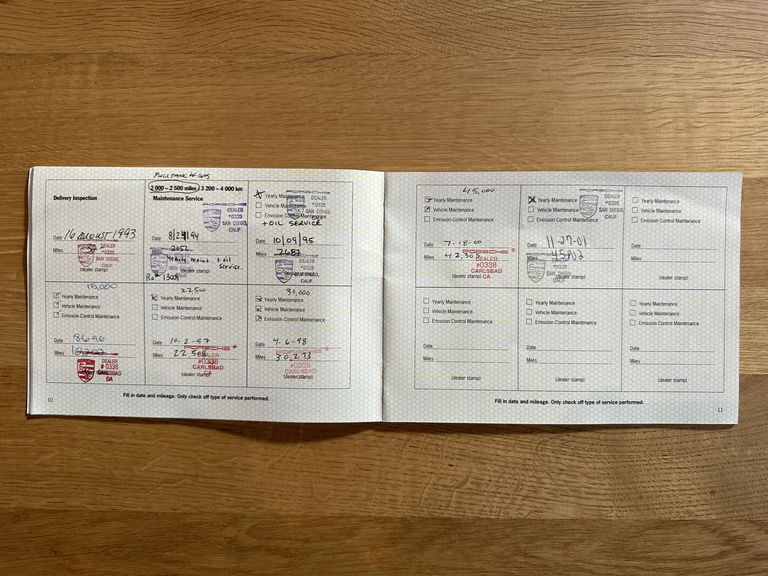 FULL TANK OF GAS
Delivery Inspection
Date 16 AUGUST 1993
Miles
DEALER
*0325
SAN DIEGO,
CALIF
(dealer stamp)
2 000 – 2 500 miles 3 200 – 4 000 km
Maintenance Service
PORSCHE
DEALER
*0325
SAN DIEGO,
CALIF
Date
Miles 2052
DEALER
(dealer stamp)
Yearly Maintenance
Vehicle Maintenance
Emission Control Maintenance
+ OIL SERVICE
PORSCHE
DEALER
*0325
SAN DIEGO,
CALIF
Date 10/09/95
Miles 2687
DEALER
*0325
SAN DIEGO,
CALIF
Yearly Maintenance
Vehicle Maintenance
Emission Control Maintenance
Date 8-6-96
Miles
DEALER
# 0338
CARLSBAD
CA
22500
Yearly Maintenance
Vehicle Maintenance
Emission Control Maintenance
Date 10-2-97
Miles
PORSCHE
DEALER
#0338
CARLSBAD
(dealer stamp)
30,000
Yearly Maintenance
Vehicle Maintenance
Emission Control Maintenance
Date 4-6-98
Miles 30,273
PORSCHE
DEALER
#0338
CARLSBAD
(dealer stamp)
10
Fill in date and mileage. Only check off type of service performed.
45,000
Yearly Maintenance
Vehicle Maintenance
Emission Control Maintenance
Date 7-18-00
Miles
PORSCHE
DEALER
#0338
CARLSBAD
CA
(dealer stamp)
Yearly Maintenance
Vehicle Maintenance
Emission Control Maintenance
PORSCHE
DEALER
*0325
SAN DIEGO,
CALIF
Date 11-27-01
Miles
DEALER
*0325
SAN DIEGO,
CALIF
(dealer stamp)
Yearly Maintenance
Vehicle Maintenance
Emission Control Maintenance
Date
Miles
(dealer stamp)
Yearly Maintenance
Vehicle Maintenance
Emission Control Maintenance
Date
Miles
(dealer stamp)
Yearly Maintenance
Vehicle Maintenance
Emission Control Maintenance
Date
Miles
(dealer stamp)
Yearly Maintenance
Vehicle Maintenance
Emission Control Maintenance
Date
Miles
(dealer stamp)
Fill in date and mileage. Only check off type of service performed.
11